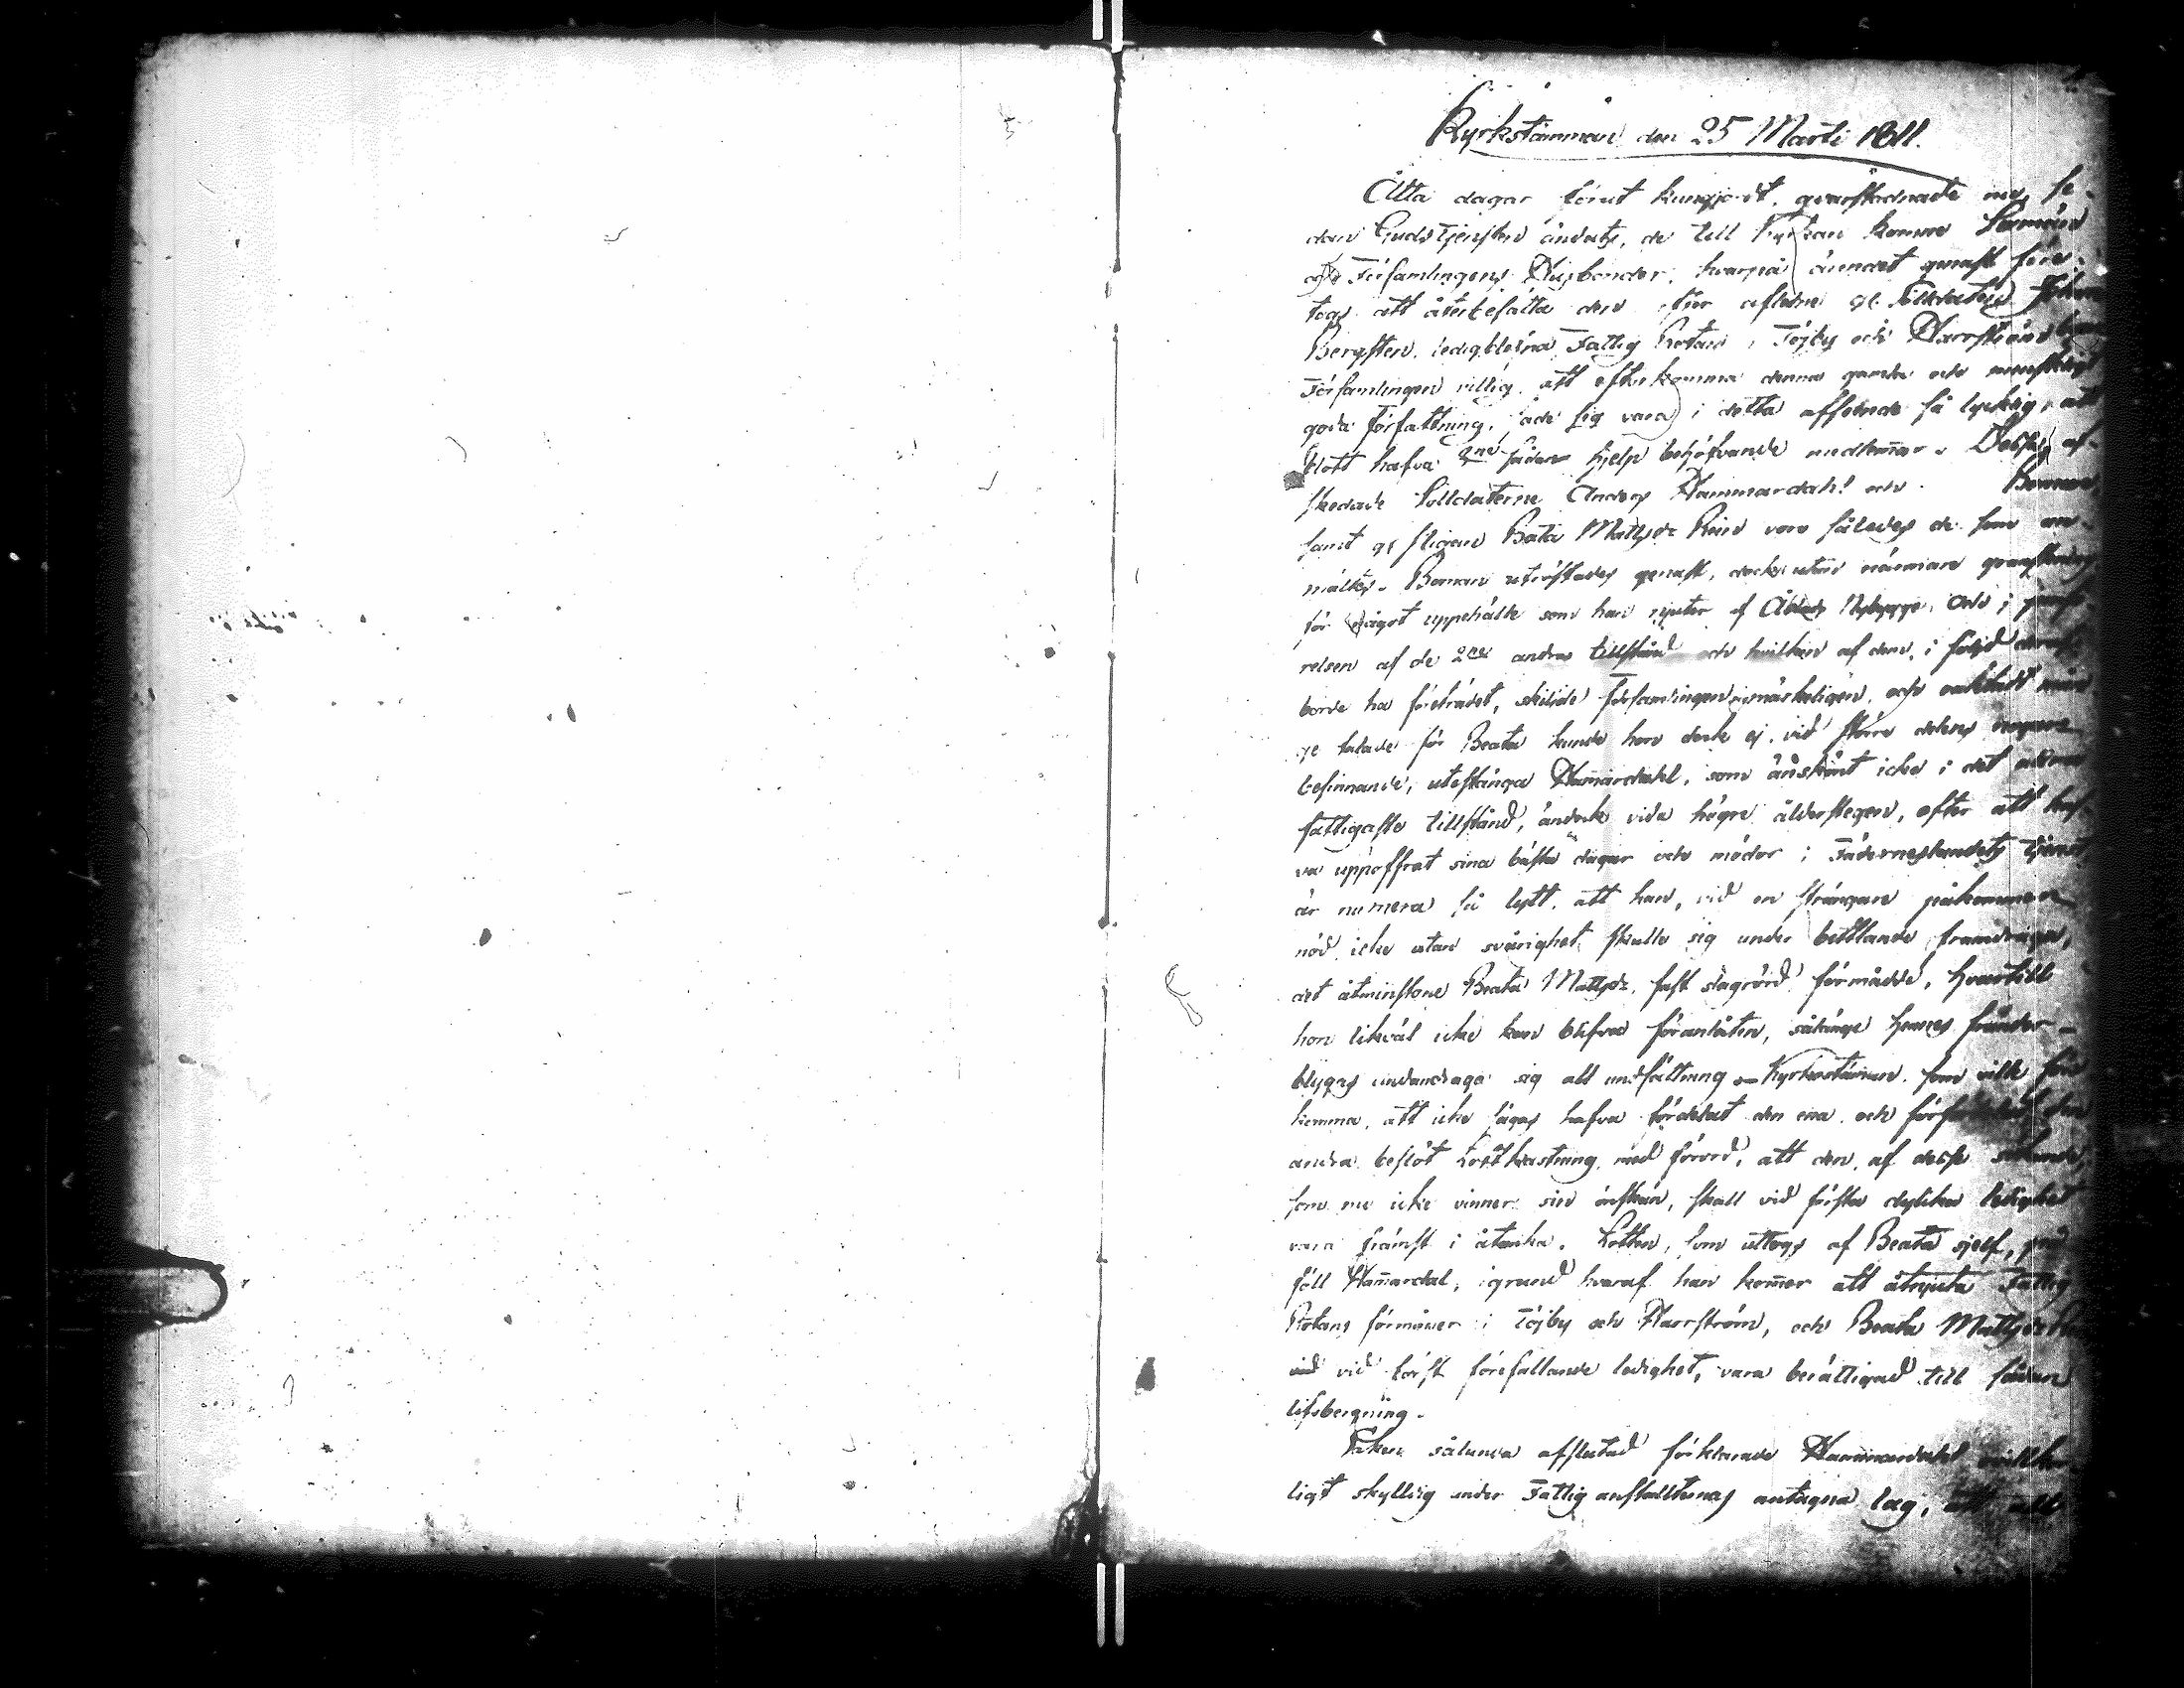 Kyrkstämman den 25 Martii 1811.
Åtta dagar förut kungjordt, qvarstadnade nu, se-
dan Gudstjensten ändats, de till Kyrkan komne
Församlingens Husbönder, hvarpå ärendet genast före-
togs att återbesätta den efter aflidne gl. Solldaten Johan
Bergsten, ledigblefna Fattig Rotan i Töjby och Harrström
Församlingen villig, att efterkomma denna gamla och
goda författning, sade sig vara i detta afseende så lycklig, att
blott hafva 3ne sådane hjelp behöfvande medlemar. Desse, af-
skedade Solldaterne Anders Hammardahl och Boman
samt gl. Pigan Beata Mattsdr Rein voro således de som an-
mältes. Boman uteslöts genast, dock utan närmare granskning
för något uppehälle som han njuter af Åbacks Nybygge. Och i jemfö-
relsen af de 2ne andras tillstånd och hvilken af dem, i följd deraf,
borde ha företrädet, skiljde Församlingen märkeligen, och
ge talade för Beata kunde hon dock ej, vid större delens
befinnande, utestänga Hamardahl, som änskönt icke i det
fattigaste tillstånd, ändock vida högre ålderstegen, efter att haf-
va uppoffrat sina bästa dagar och mödor i Fäderneslandets tjenst
är numera så lytt, att han, vid en strängare påkommen
nöd, icke utan svårighet skulle sig under bettlande framdraga,
det åtminstone Beata Mattsdr, fast slagrörd förmådde, hvartill
hon likväl icke kan blifva föranlåten, sålänge hennes fränder
blygas undandraga sig all undsättning – Kyrkostämman, som ville före
komma, att icke sägas hafva fördelat den ena och förfördelat den
andra beslöt Lottkastning, med förord, att den, af desse sökande,
som nu icke vinner sin önskan, skall vid första dylika ledighet
vara främst i åtanka. Lotten, som uttogs af Beata sjelf, på
föll Hamardal, i grund hvaraf han komer att åtnjuta Fattig
Rotans förmåner i Töjby och Harrström, och Beata Mattsdr Rein
vid först förefallande ledighet, vara berättigad till sådan
lifsbergning.
Saken sålunda afslutad förklarade Hammardahl
ligt skyllig under Fattiganstallternas antagna lag, att all